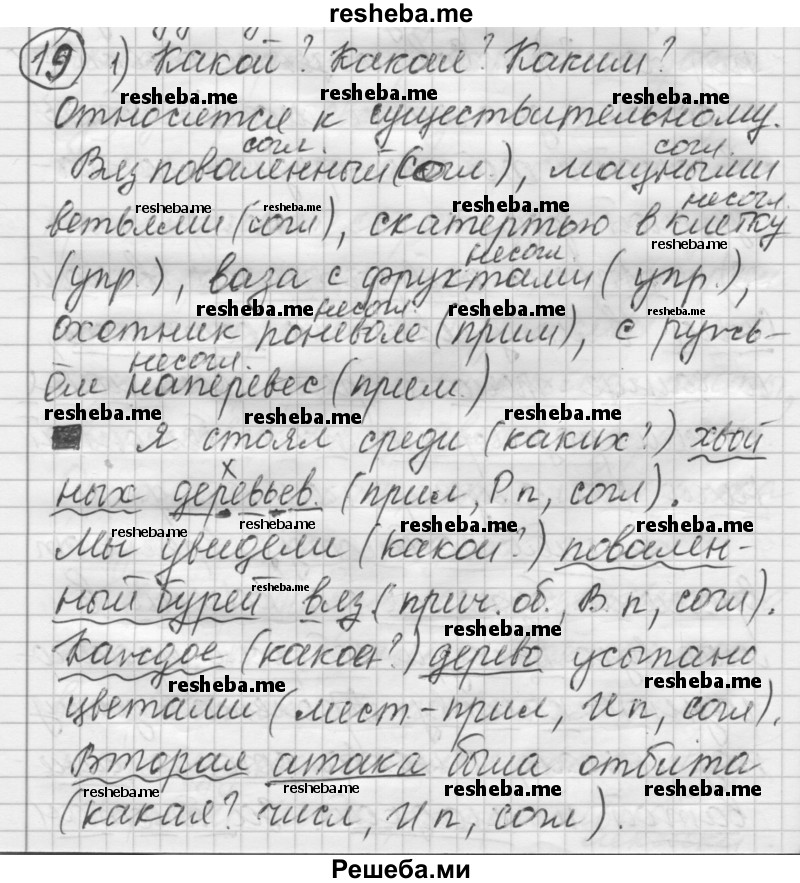 resheba.me
19 1) Какой? Какая? Каким?
resheba.me resheba.me resheba.me
Относится к существительному.
согл. согл.
Вяз поваленный (согл.), мощными
несогл.
resheba.me resheba.me
ветвями (согл), скатертью в клетку
resheba.me
несогл.
(упр.), ваза с фруктами (упр.),
resheba.me несогл. resheba.me resheba.me
охотник поневоле (прим), с ружь-
несогл.
ём наперевес (прим.)
resheba.me resheba.me resheba.me
Я стоял среди (каких?) хвой
х
ных деревьев. (прил, Р.п, согл).
resheba.me resheba.me resheba.me resheba.me
Мы увидели (какой?) повален-
resheba.me
ный бурей вяз (прич. об., В.п, согл).
resheba.me
Каждое (какое?) дерево усыпано
resheba.me resheba.me
цветами (мест-прил, Ип, согл).
Вторая атака была отбита
resheba.me resheba.me resheba.me resheba.me
(какая? числ, Ип, согл).
Решеба.ми